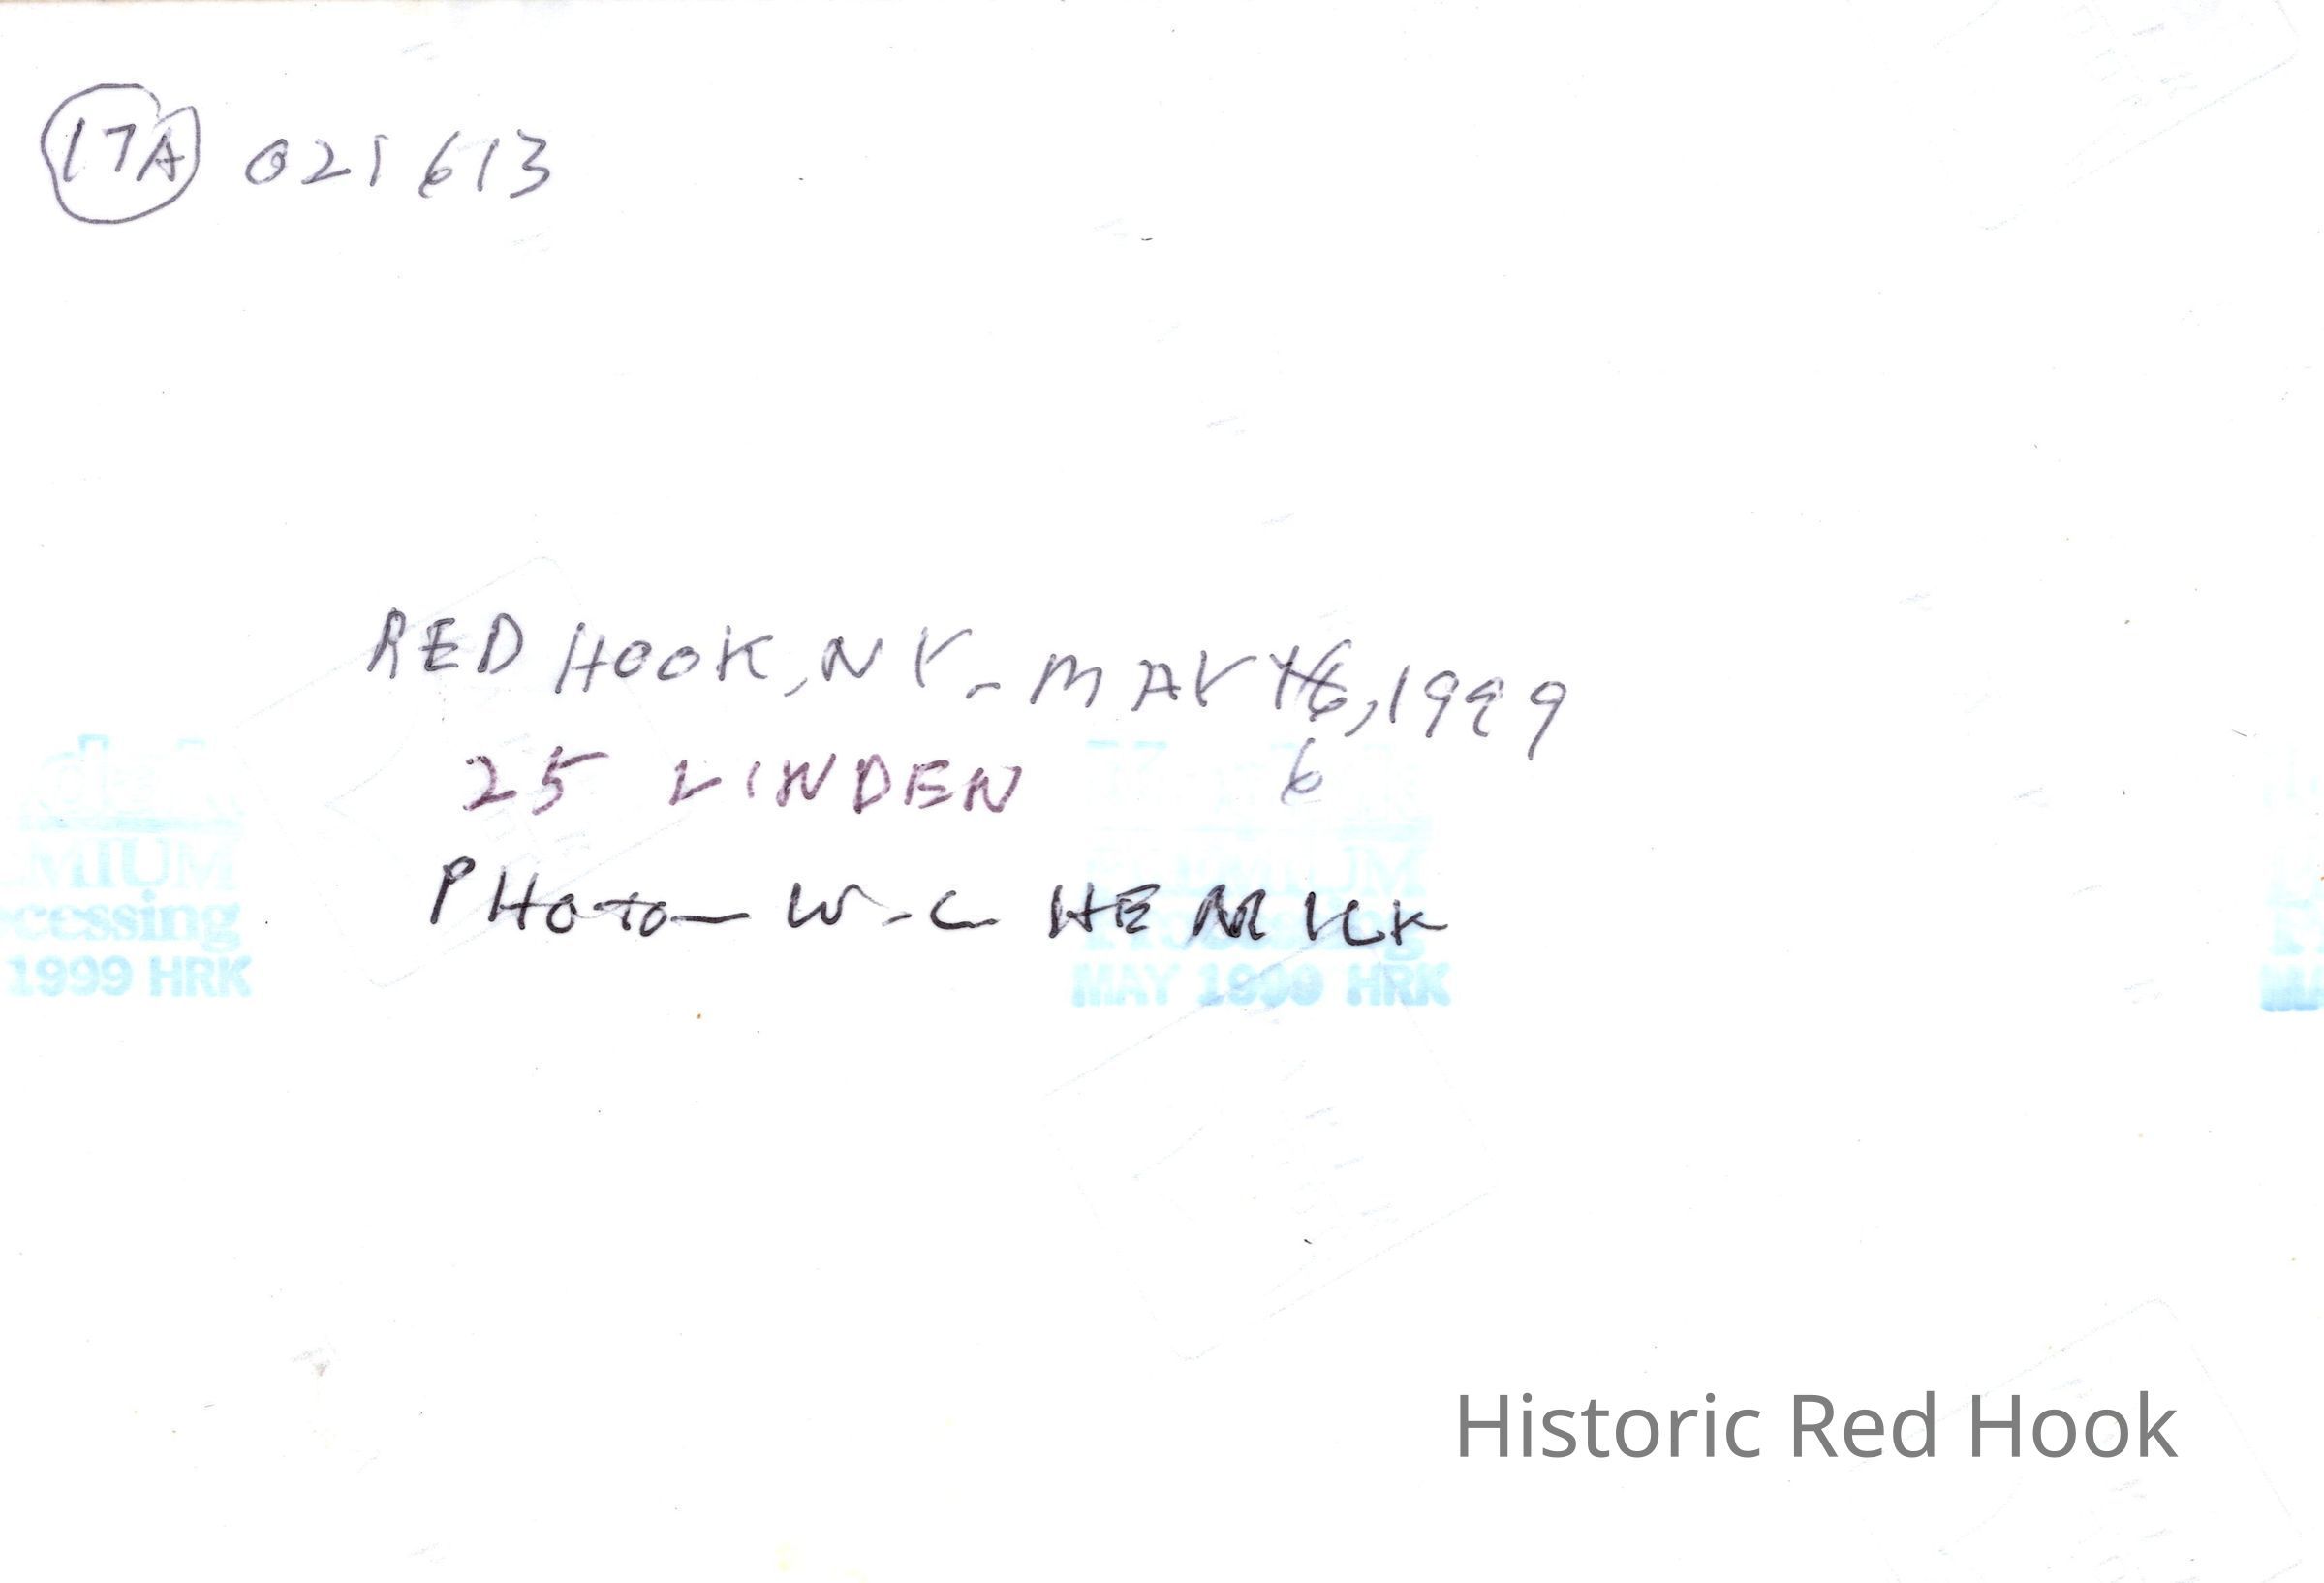 17A 021613
RED HOOK, NY - MAY 6, 1999
25 LINDEN
PHOTO - W.C HENRICK
MIUM
cessing
1999 HRK
PREMIUM
Processing
MAY 1999 HRK
Historic Red Hook